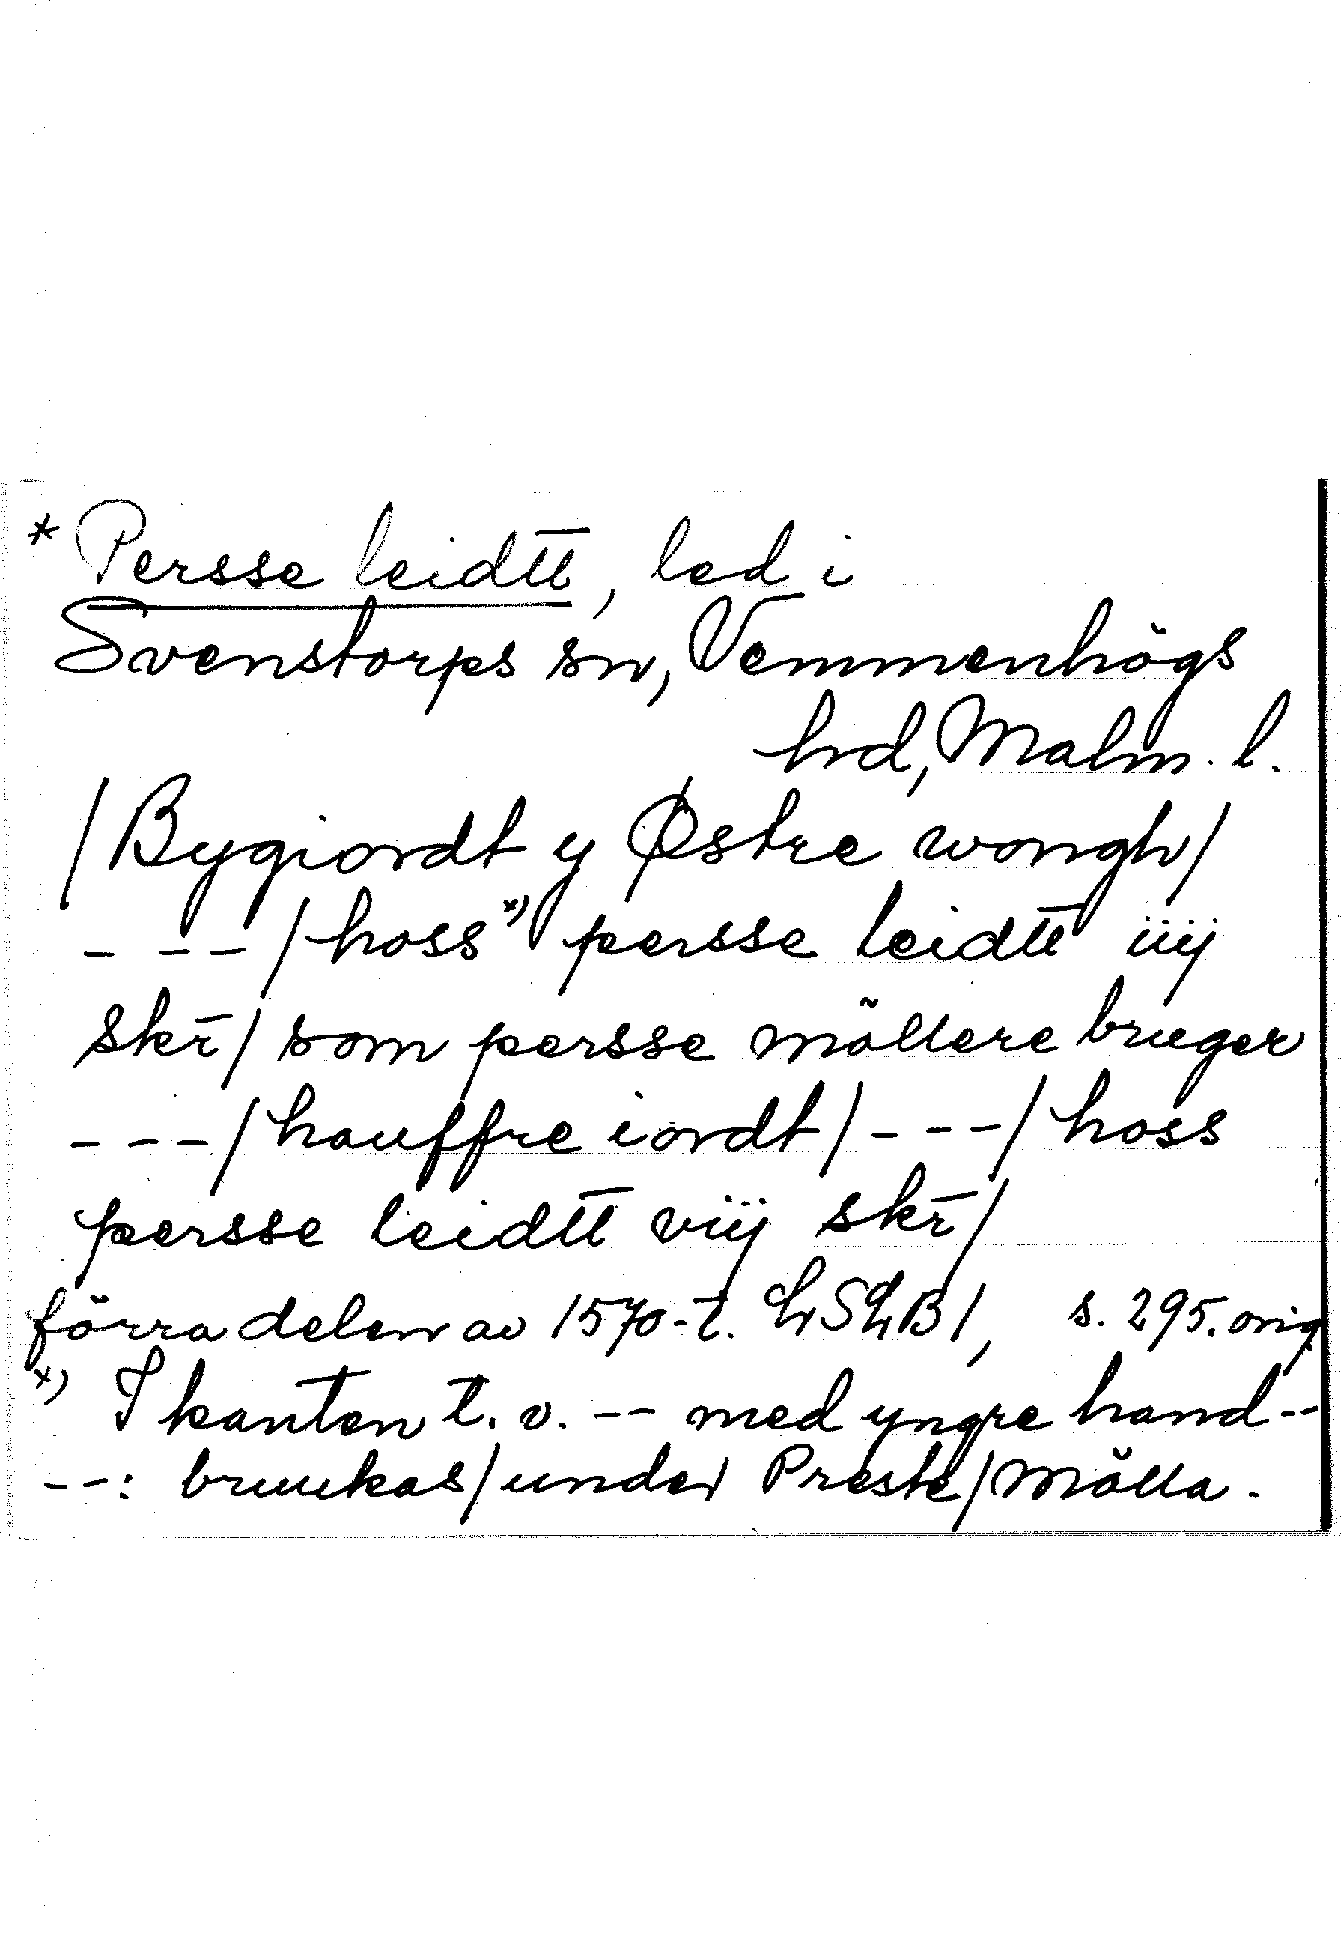 * Persse leidtt̅, led i
Svenstorps sn, Vemmenhögs
hd, Malm. l.
/Bygiordt y Østre wongh/
- - - /hoss x) persse leidtt̅ iiij
skr̅/ som persse möllere bruger
- - - /hauffre iordt/- - -/ hoss
persse leidtt̅ viij skr̅/
förra delen av 1570-t. LSLB1, s. 295. orig
x) I kanten t. v. -- med yngre hand --
--: bruukas/under Preste/Mölla.